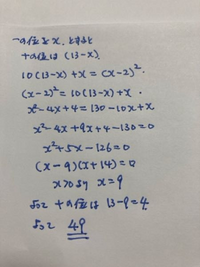 一の位をx.とすると
十の位は(13-x).
10(13-x)+x=(x-2)².
(x-2)²=10(13-x)+x.
x²-4x+4=130-10x+x
x²-4x+9x+4-130=0
x²+5x-126=0
(x-9)(x+14)=0
x>0より x=9
よって 十の位は 13-9=4.
よって 49